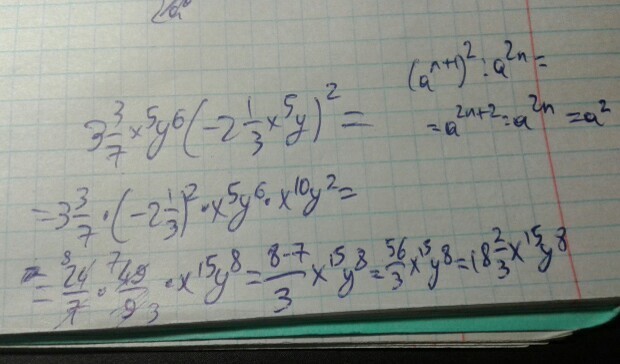 (aⁿ⁺¹)² : a²ⁿ =
= a²ⁿ⁺² : a²ⁿ = a²
3 3/7 x⁵y⁶(-2 1/3 x⁵y)² =
= 3 3/7 · (-2 1/3)² · x⁵y⁶ · x¹⁰y² =
= 24/7 · 49/9 · x¹⁵y⁸ = 8·7/3 x¹⁵y⁸ = 56/3 x¹⁵y⁸ = 18 2/3 x¹⁵y⁸